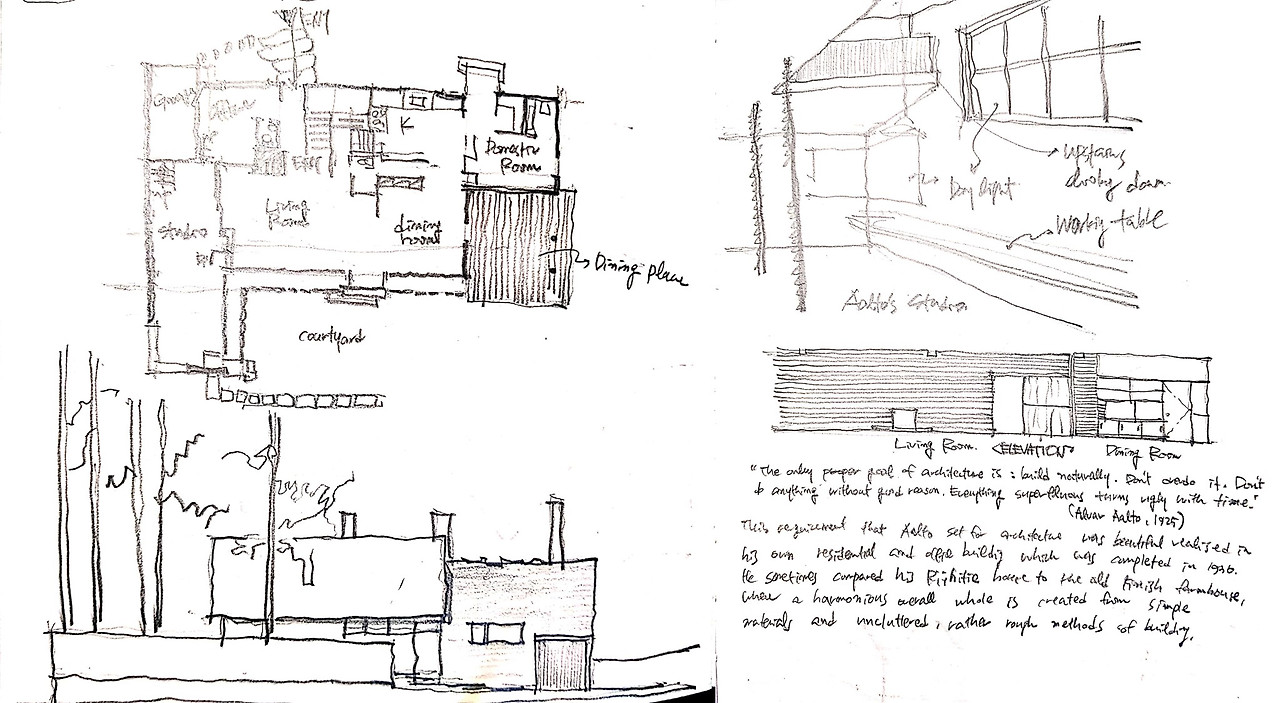 K
Domestic
Room
Living
Room
dining
room
Studio
Dining place
courtyard
upstairs
down
Day light
Working table
Aalto's Studio
Living Room. <ELEVATION> Dining Room
"The only proper goal of architecture is : build naturally. Don't overdo it. Don't
do anything without good reason. Everything superfluous turns ugly with time."
(Alvar Aalto, 1925)
This requirement that Aalto set for architecture was beautiful realised in
his own residential and office building which was completed in 1936.
He sometimes compared his Riihitie house to the old Finnish farmhouse,
where a harmonious overall whole is created from simple
materials and uncluttered, rather rough methods of building.